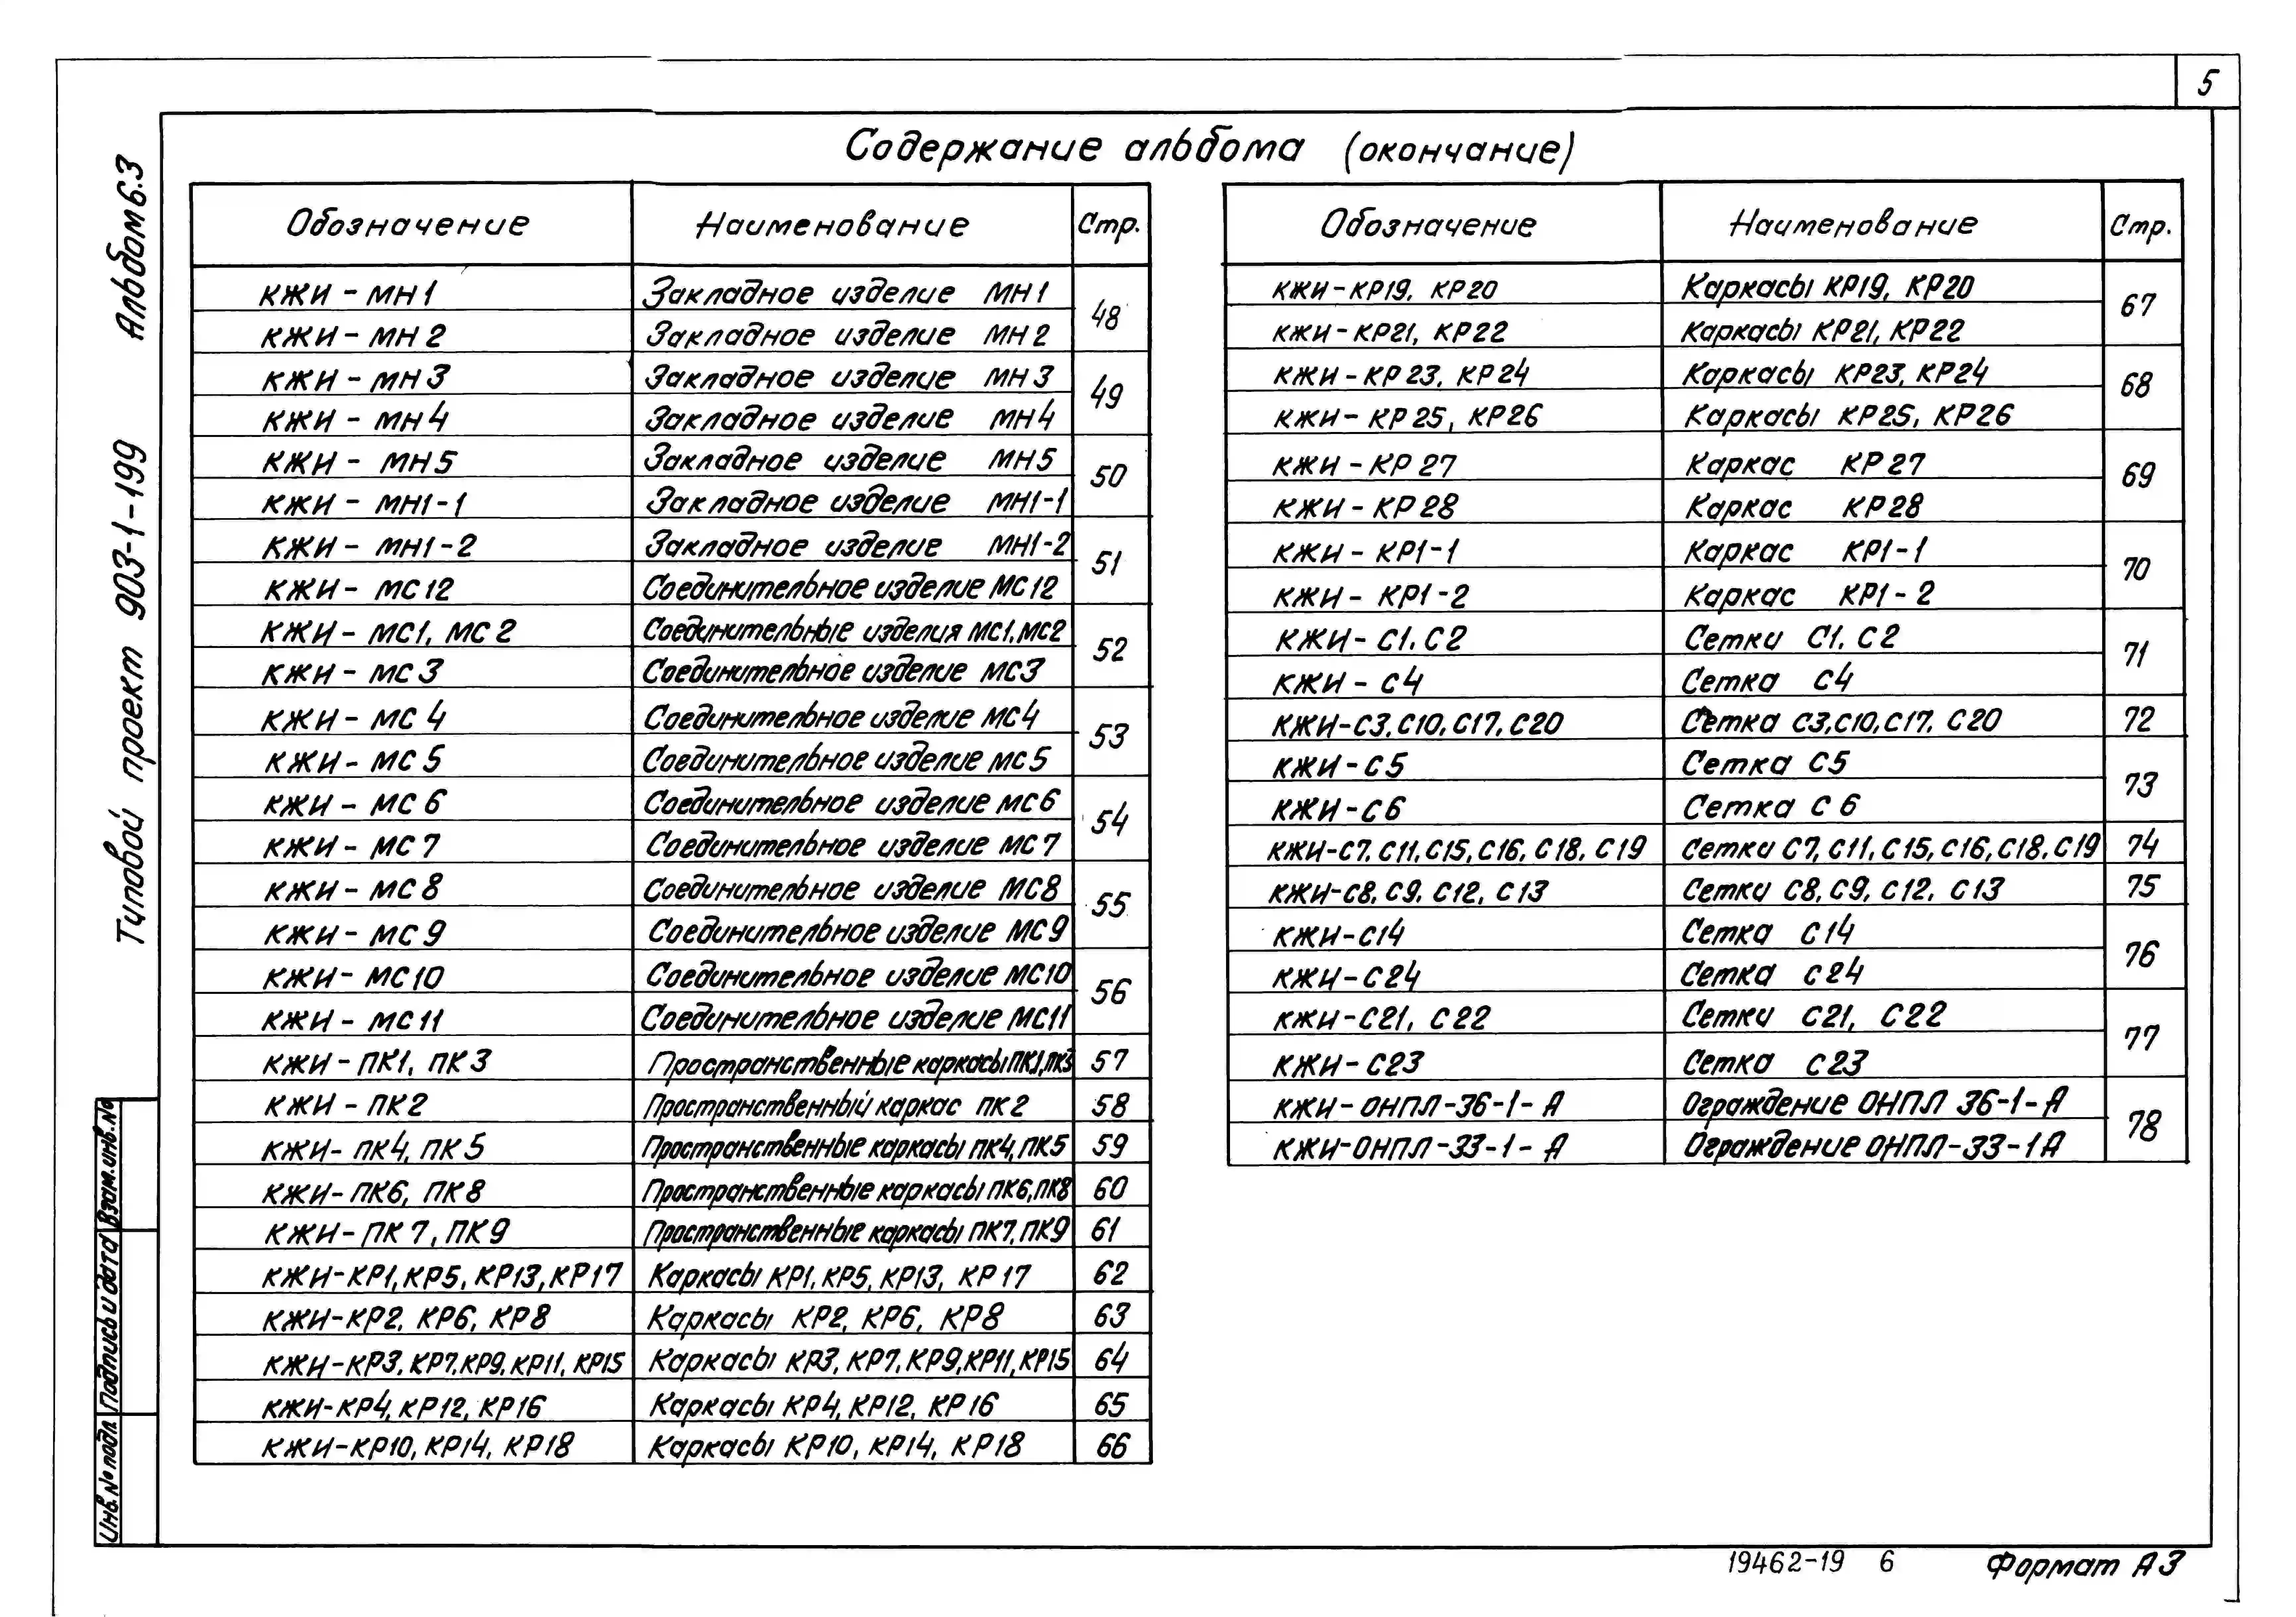 5
Содержание альбома (окончание)
Альбом 6.3
Типовой проект 903-1-199
Обозначение Наименование Стр.
КЖИ-МН1 Закладное изделие МН1 48
КЖИ-МН2 Закладное изделие МН2
КЖИ-МН3 Закладное изделие МН3 49
КЖИ-МН4 Закладное изделие МН4
КЖИ-МН5 Закладное изделие МН5 50
КЖИ-МН1-1 Закладное изделие МН1-1
КЖИ-МН1-2 Закладное изделие МН1-2 51
КЖИ-МС12 Соединительное изделие МС12
КЖИ-МС1, МС2 Соединительные изделия МС1, МС2 52
КЖИ-МС3 Соединительное изделие МС3
КЖИ-МС4 Соединительное изделие МС4 53
КЖИ-МС5 Соединительное изделие МС5
КЖИ-МС6 Соединительное изделие МС6 54
КЖИ-МС7 Соединительное изделие МС7
КЖИ-МС8 Соединительное изделие МС8 55
КЖИ-МС9 Соединительное изделие МС9
КЖИ-МС10 Соединительное изделие МС10 56
КЖИ-МС11 Соединительное изделие МС11
КЖИ-ПК1, ПК3 Пространственные каркасы ПК1, ПК3 57
КЖИ-ПК2 Пространственный каркас ПК2 58
КЖИ-ПК4, ПК5 Пространственные каркасы ПК4, ПК5 59
КЖИ-ПК6, ПК8 Пространственные каркасы ПК6, ПК8 60
КЖИ-ПК7, ПК9 Пространственные каркасы ПК7, ПК9 61
КЖИ-КР1, КР5, КР13, КР17 Каркасы КР1, КР5, КР13, КР17 62
КЖИ-КР2, КР6, КР8 Каркасы КР2, КР6, КР8 63
КЖИ-КР3, КР7, КР9, КР11, КР15 Каркасы КР3, КР7, КР9, КР11, КР15 64
КЖИ-КР4, КР12, КР16 Каркасы КР4, КР12, КР16 65
КЖИ-КР10, КР14, КР18 Каркасы КР10, КР14, КР18 66
Обозначение Наименование Стр.
КЖИ-КР19, КР20 Каркасы КР19, КР20 67
КЖИ-КР21, КР22 Каркасы КР21, КР22
КЖИ-КР23, КР24 Каркасы КР23, КР24 68
КЖИ-КР25, КР26 Каркасы КР25, КР26
КЖИ-КР27 Каркас КР27 69
КЖИ-КР28 Каркас КР28
КЖИ-КР1-1 Каркас КР1-1 70
КЖИ-КР1-2 Каркас КР1-2
КЖИ-С1, С2 Сетки С1, С2 71
КЖИ-С4 Сетка С4
КЖИ-С3, С10, С17, С20 Сетка С3, С10, С17, С20 72
КЖИ-С5 Сетка С5 73
КЖИ-С6 Сетка С6
КЖИ-С7, С11, С15, С16, С18, С19 Сетки С7, С11, С15, С16, С18, С19 74
КЖИ-С8, С9, С12, С13 Сетки С8, С9, С12, С13 75
КЖИ-С14 Сетка С14 76
КЖИ-С24 Сетка С24
КЖИ-С21, С22 Сетки С21, С22 77
КЖИ-С23 Сетка С23
КЖИ-ОНПЛ-36-1-А Ограждение ОНПЛ 36-1-А 78
КЖИ-ОНПЛ-33-1-А Ограждение ОНПЛ-33-1А
Взам. инв. №
Подпись и дата
Инв. № подл.
19462-19 6 Формат А3